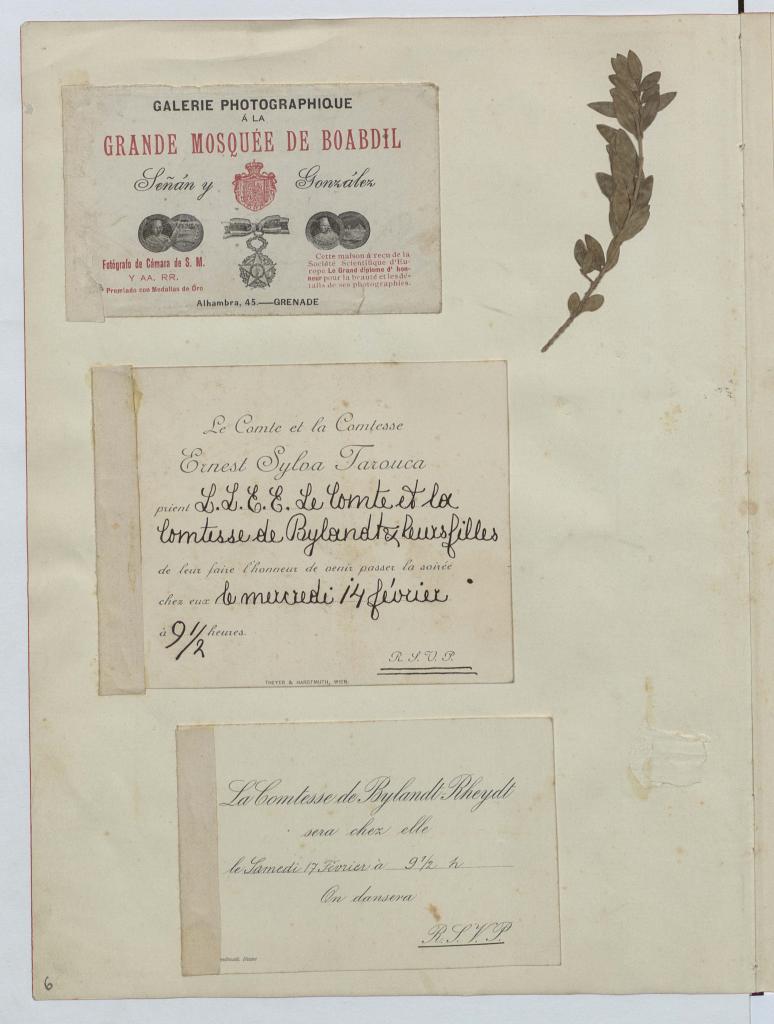 GALERIE PHOTOGRAPHIQUE
Á LA
GRANDE MOSQUÉE DE BOABDIL
Señán y González
Fotógrafo de Cámara de S. M.
Y AA. RR.
Premiado con Medallas de Oro
Cette maison à reçu de la
Société Scientifique d'Eu-
rope Le Grand diplome d' hon-
neur pour la beauté et les dé-
tails de ses photographies.
Alhambra, 45.—GRENADE
Le Comte et la Comtesse
Ernest Sylva Tarouca
prient L.L.E.E. Le Comte et la
Comtesse de Bylandt & leurs filles
de leur faire l'honneur de venir passer la soirée
chez eux le mercredi 14 février
à 9 1/2 heures.
R. S. V. P.
THEYER & HARDTMUTH, WIEN.
La Comtesse de Bylandt-Rheydt
sera chez elle
le Samedi 17 Février à 9 1/2 h
On dansera
R. S. V. P.
6